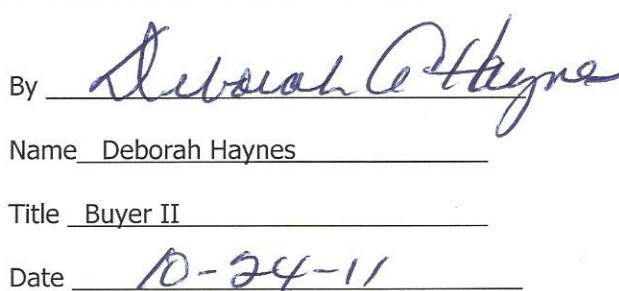 By Deborah A Haynes
Name Deborah Haynes
Title Buyer II
Date 10-24-11